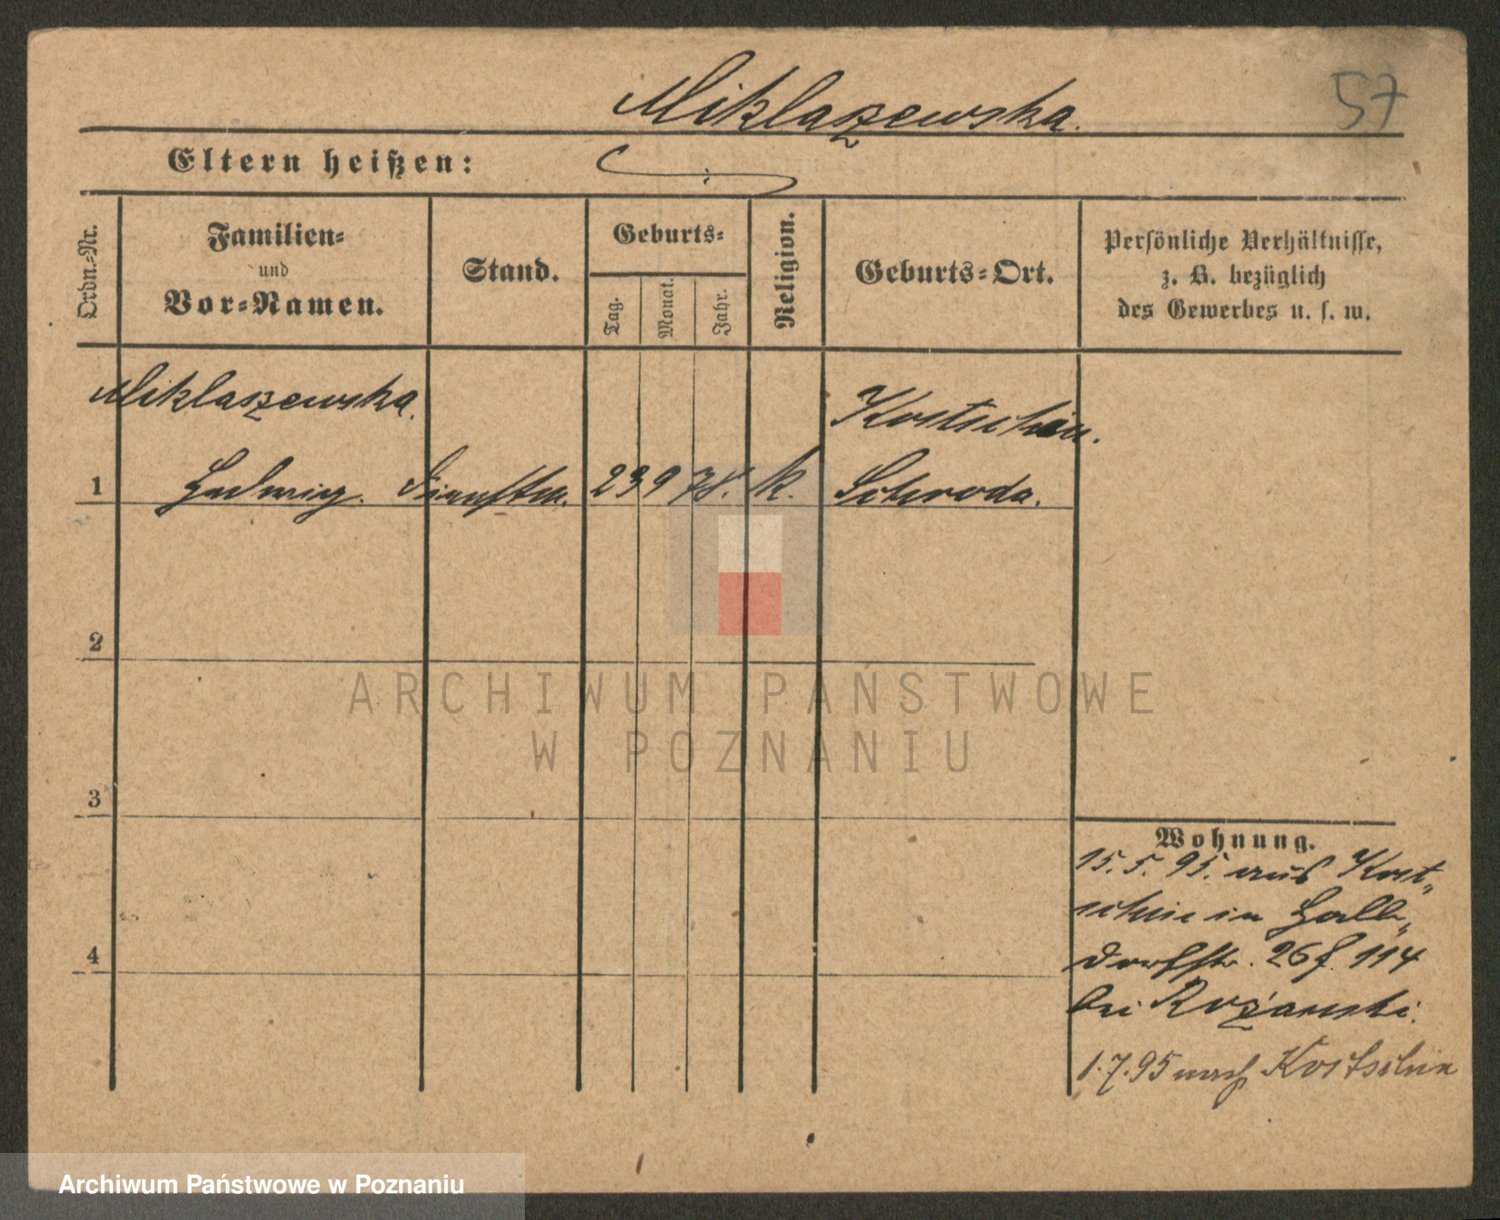 Miklaszewska.
57
Eltern heißen:
Ordn.-Nr.
Familien-
und
Vor-Namen.
Stand.
Geburts-
Tag.
Monat.
Jahr.
Religion.
Geburts-Ort.
Persönliche Verhältnisse,
z. B. bezüglich
des Gewerbes u. s. w.
Miklaszewska.
Kostschin.
1 Hedwig. Dienstm. 23 9 78. k. Schroda.
2
3
4
Wohnung.
15. 5. 95. aus Kost-
schin in Halb-
dorfstr. 26 f. 114
bei Rożanski.
1. 7. 95 nach Kostschin
ARCHIWUM PAŃSTWOWE
W POZNANIU
Archiwum Państwowe w Poznaniu